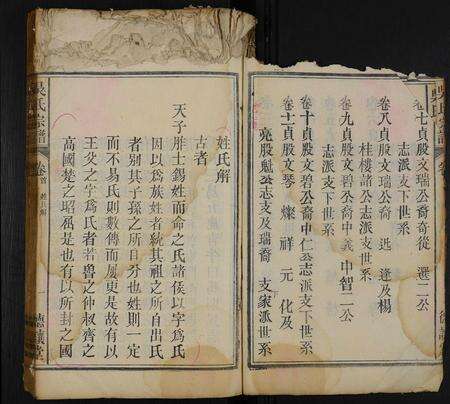 卷七貞股文瑞公裔奇後 選二公
志派支下世系
卷八貞股文瑞公裔 逢及楊
桂樓諸公志派支世系
卷九貞股文碧公裔中義中智二公
志派支下世系
卷十貞股文碧公裔中仁公志派支下世系
卷十一貞股文琴 燦 祥 元 化及
亮股魁公志支及瑞裔 支家派世系
吳氏宗譜
卷首 姓氏解
德讓堂
姓氏解
古者
天子胙土錫姓而命之氏諸侯以字爲氏
因以爲族姓者統其祖之所自出氏
者别其子孫之所自分也姓則一定
而不易氏則數傳而屢更是故有以
王父之字爲氏者若魯之仲叔齊之
高國楚之昭屬是也有以所封之國